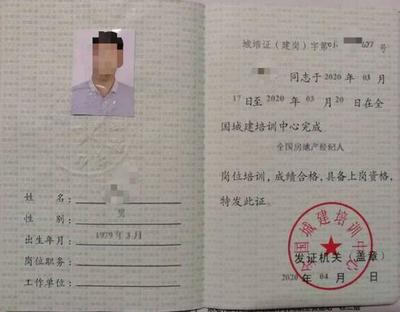 姓　　名：
性　　别：男
出生年月：1979年3月
岗位职务：
工作单位：
城培证（建岗）字第　627 号
同志于 2020 年 03 月
17 日至 2020 年 03 月 20 日在全
国城建培训中心完成
全国房地产经纪人
岗位培训，成绩合格，具备上岗资格，
特发此证。
全国城建培训中心
发证机关（盖章）
2020 年 04 月　日